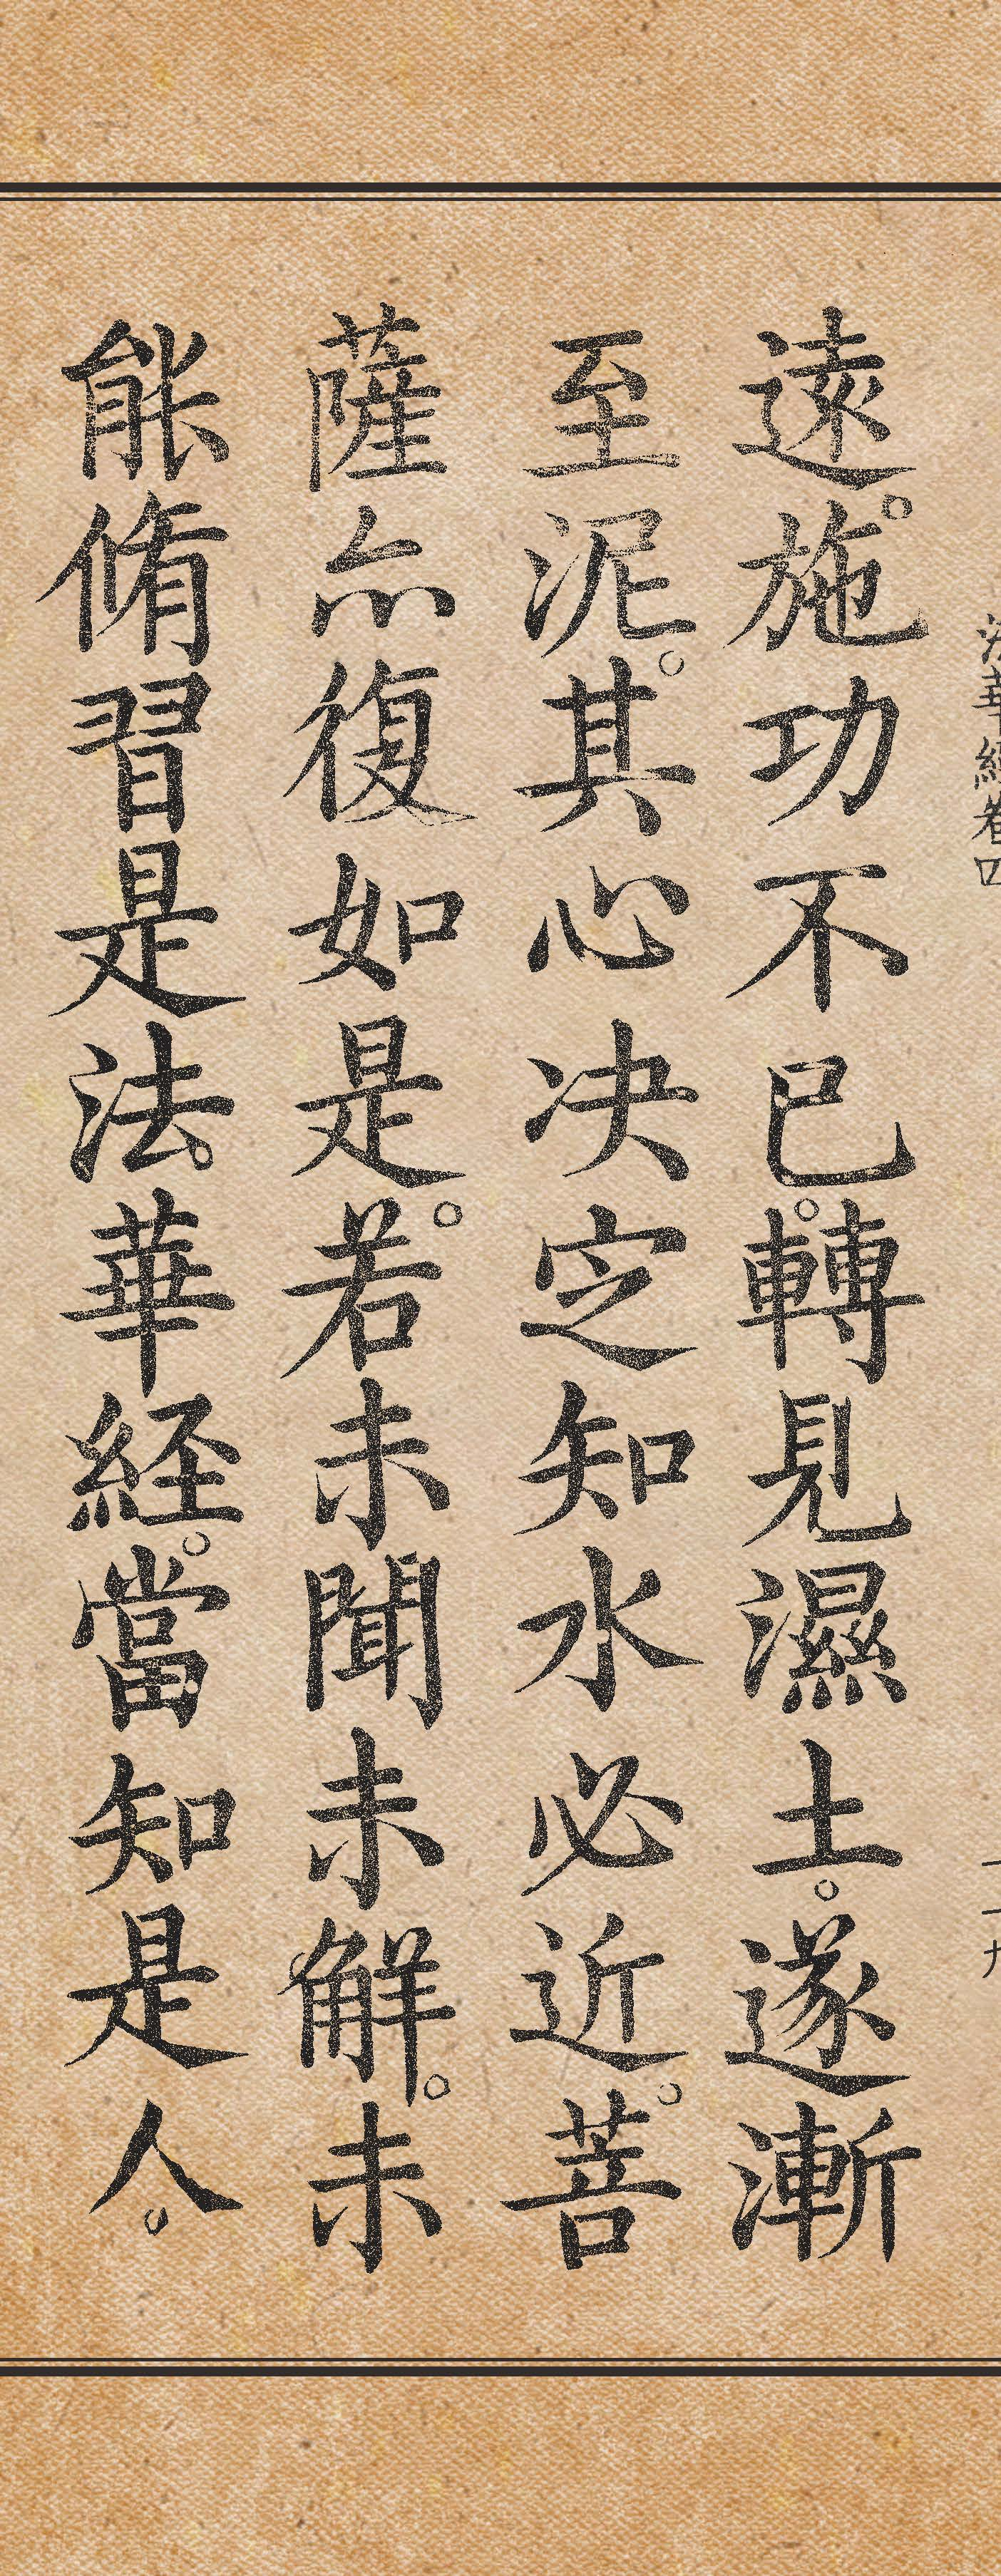 法華經卷四
二十九
遠。施功不已。轉見濕土。遂漸
至泥。其心决定知水必近。菩
薩亦復如是。若未聞未解。未
能脩習是法華経。當知是人。